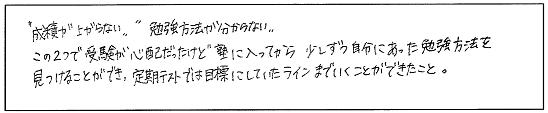 "成績が上がらない。" "勉強方法が分からない。"
この2つで受験が心配だったけど 塾に入ってから 少しずつ自分にあった勉強方法を
見つけることができ、定期テストでは目標にしていたラインまでいくことができたこと。